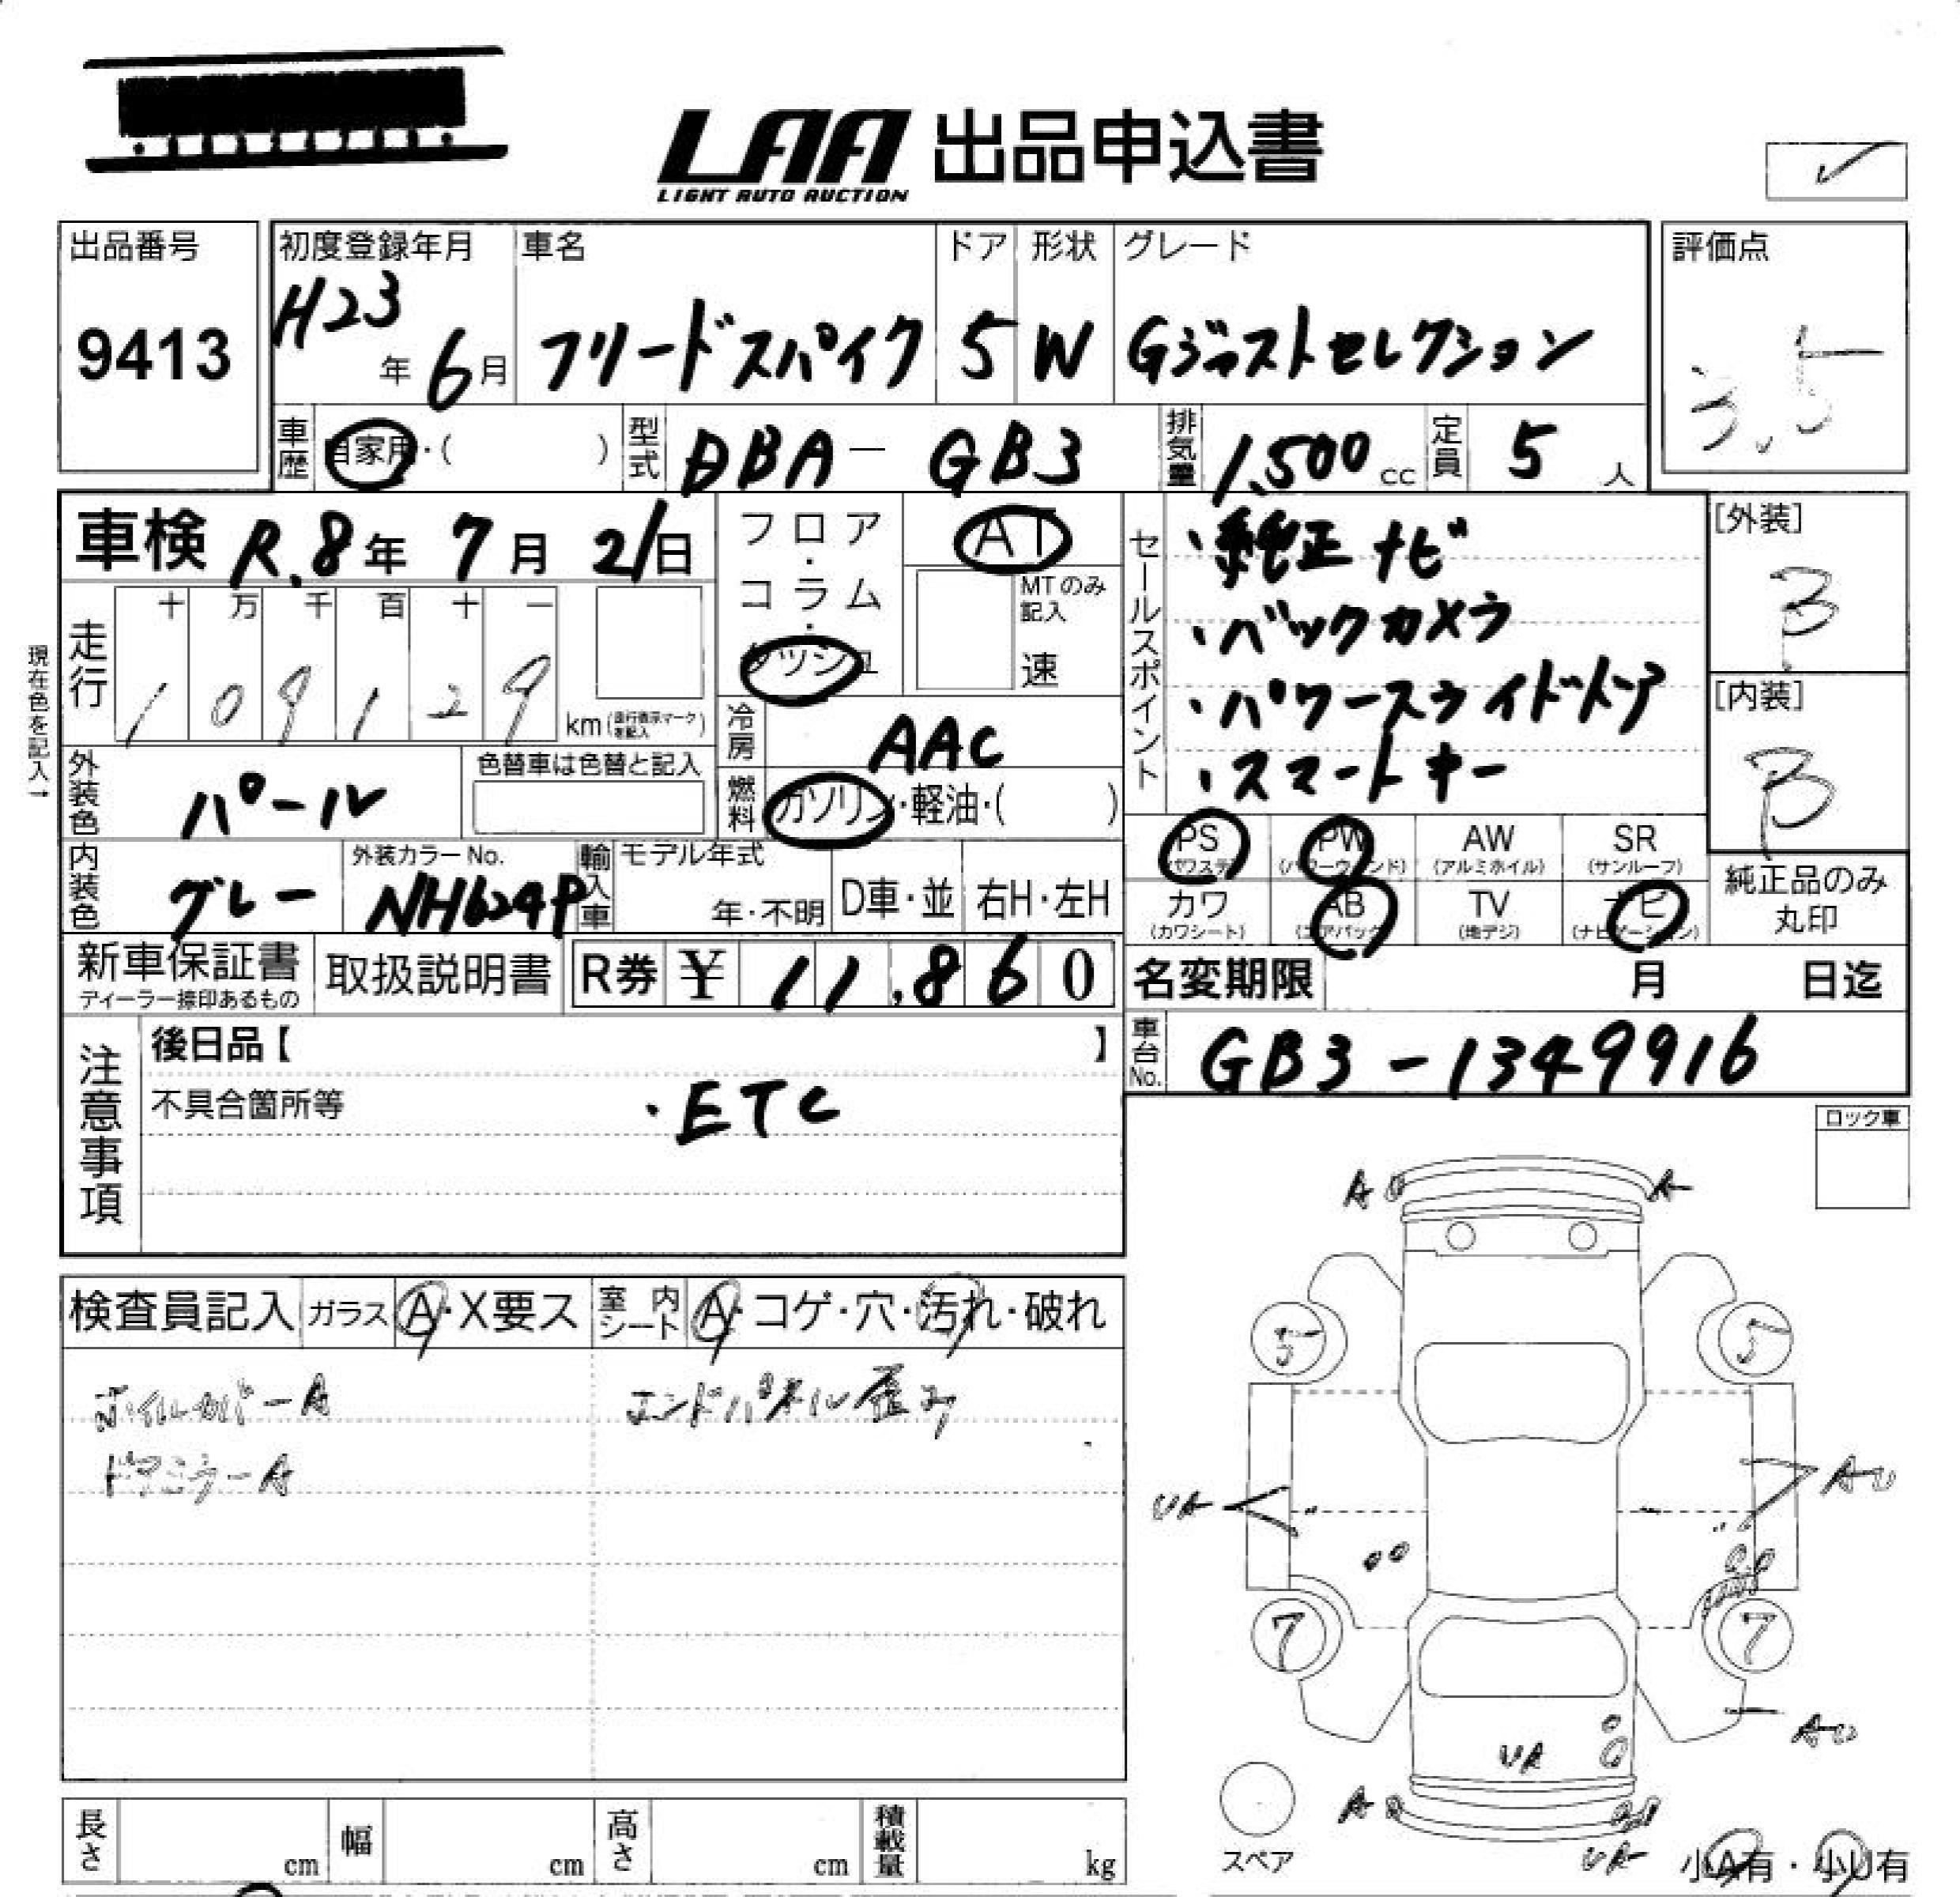 LAA 出品申込書
LIGHT AUTO AUCTION
出品番号
9413
初度登録年月
H23年6月
車名
フリードスパイク
ドア
5
形状
W
グレード
Gジャストセレクション
評価点
3.5
車歴
自家用・( )
型式
DBA-GB3
排気量
1,500cc
定員
5人
車検 R.8年 7月 21日
フロア・コラム・ダッシュ
AT
MTのみ記入
速
セールスポイント
・純正ナビ
・バックカメラ
・パワースライドドア
・スマートキー
[外装]
B
[内装]
B
現在色を記入→
走行
十 万 千 百 十 一
1 0 9 1 2 9
km(走行表示マークを記入)
冷房
AAC
外装色
パール
色替車は色替と記入
燃料
ガソリン・軽油・( )
内装色
グレー
外装カラーNo.
NH624P
輸入車
モデル年式
年・不明
D車・並
右H・左H
PS
(パワステ)
PW
(パワーウィンド)
AW
(アルミホイル)
SR
(サンルーフ)
カワ
(カワシート)
AB
(エアバック)
TV
(地デジ)
ナビ
(ナビゲーション)
純正品のみ
丸印
新車保証書
ディーラー捺印あるもの
取扱説明書
R券 ¥ 11,860
名変期限 月 日迄
注意事項
後日品【 】
不具合箇所等
・ETC
車台No.
GB3-1349916
ロック車
検査員記入
ガラス
A・X要ス
室内シート
A・コゲ・穴・汚れ・破れ
ホイルカバーA
エンドパネル歪み
ドアミラーA
A
A
5
5
UA
AU
7
7
AU
UA
A
UA
スペア
小A有・小U有
長さ
cm
幅
cm
高さ
cm
積載量
kg